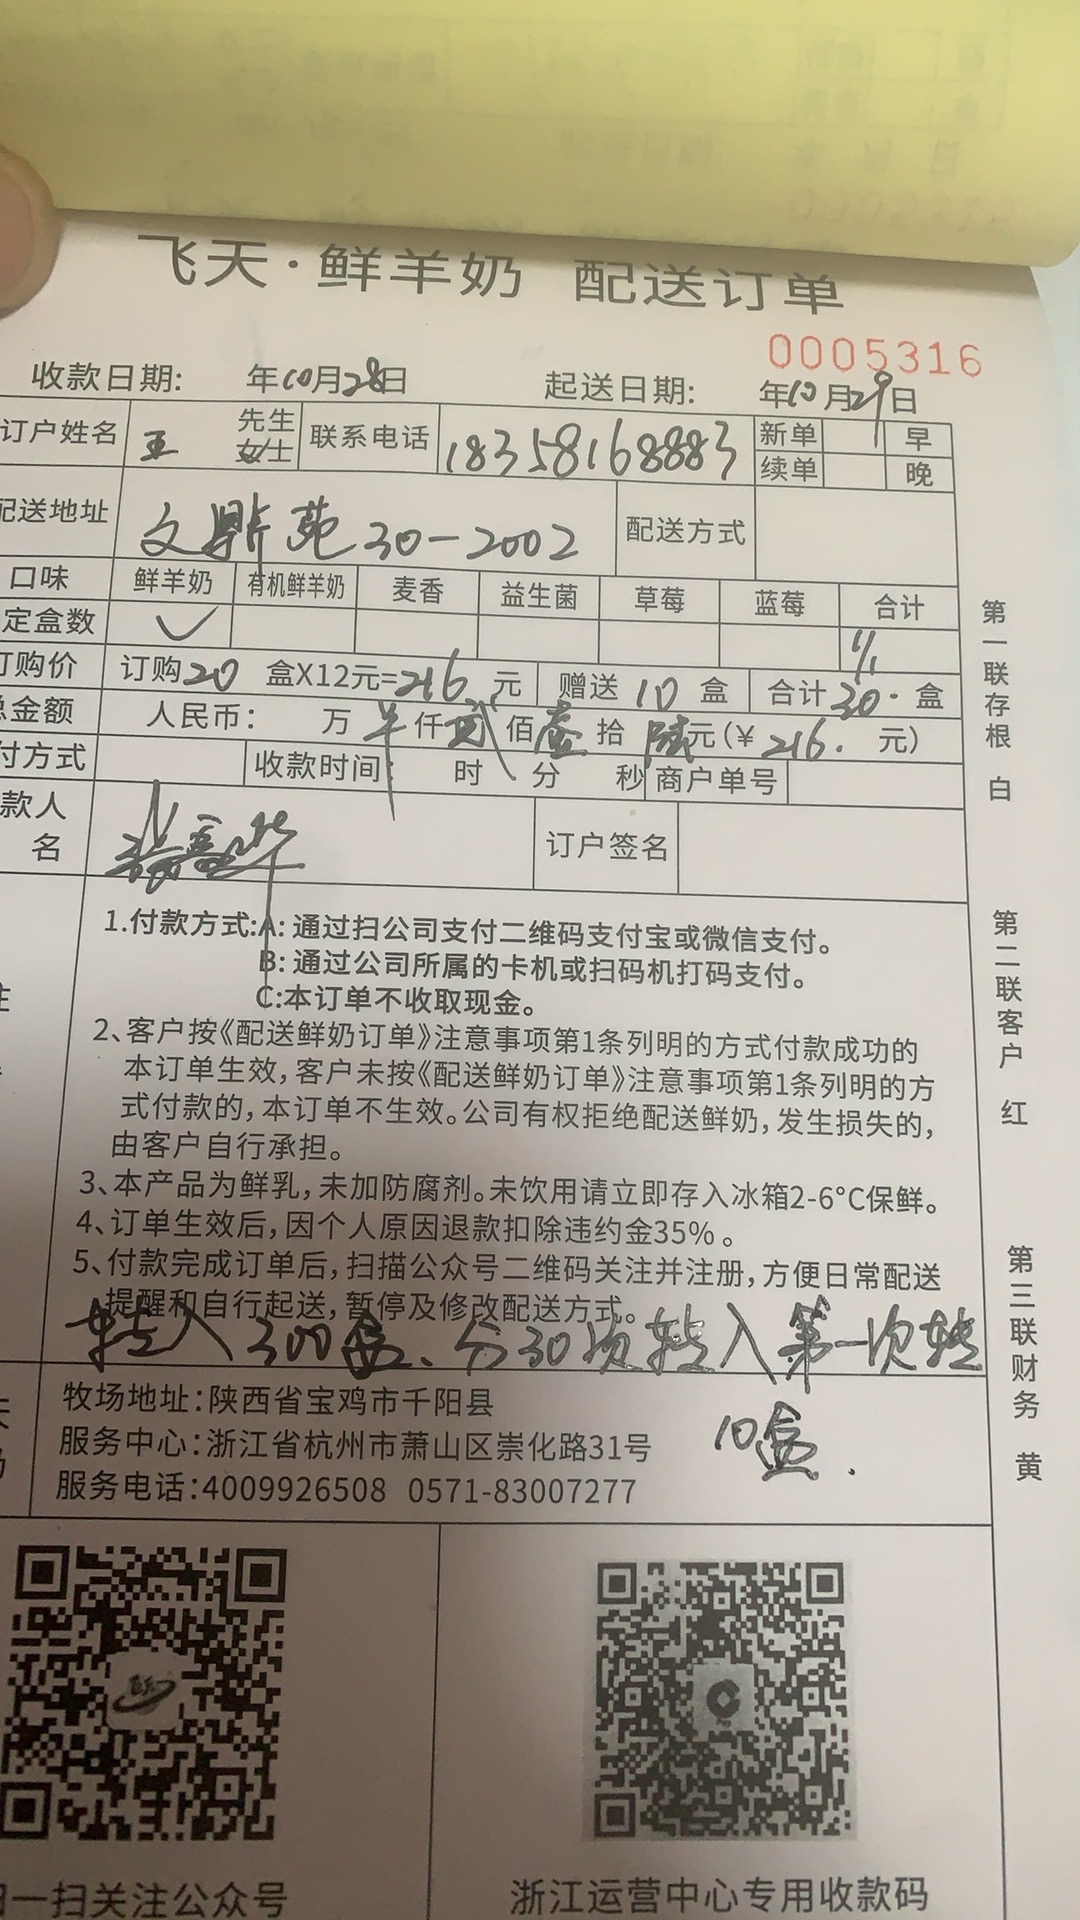 飞天·鲜羊奶 配送订单
0005316
收款日期: 年10月28日 起送日期: 年10月29日
订户姓名 王 先生 女士 联系电话 18358168883 新单 早
续单 晚
配送地址 文鼎苑30-2002 配送方式
口味 鲜羊奶 有机鲜羊奶 麦香 益生菌 草莓 蓝莓 合计
定盒数 ✓ 1/1
订购价 订购20 盒X12元=216元 赠送10盒 合计30.盒
总金额 人民币: 万 仟贰佰壹拾陆元(¥216. 元)
付方式 收款时间: 时 分 秒 商户单号
款人 名 订户签名
1.付款方式:A:通过扫公司支付二维码支付宝或微信支付。
B:通过公司所属的卡机或扫码机打码支付。
C:本订单不收取现金。
2、客户按《配送鲜奶订单》注意事项第1条列明的方式付款成功的
本订单生效,客户未按《配送鲜奶订单》注意事项第1条列明的方
式付款的,本订单不生效。公司有权拒绝配送鲜奶,发生损失的,
由客户自行承担。
3、本产品为鲜乳,未加防腐剂。未饮用请立即存入冰箱2-6°C保鲜。
4、订单生效后,因个人原因退款扣除违约金35%。
5、付款完成订单后,扫描公众号二维码关注并注册,方便日常配送
提醒和自行起送,暂停及修改配送方式。
转入300盒、分30次转入第一次转
10盒.
牧场地址:陕西省宝鸡市千阳县
服务中心:浙江省杭州市萧山区崇化路31号
服务电话:4009926508 0571-83007277
扫一扫关注公众号 浙江运营中心专用收款码
第一联存根 白
第二联客户 红
第三联财务 黄